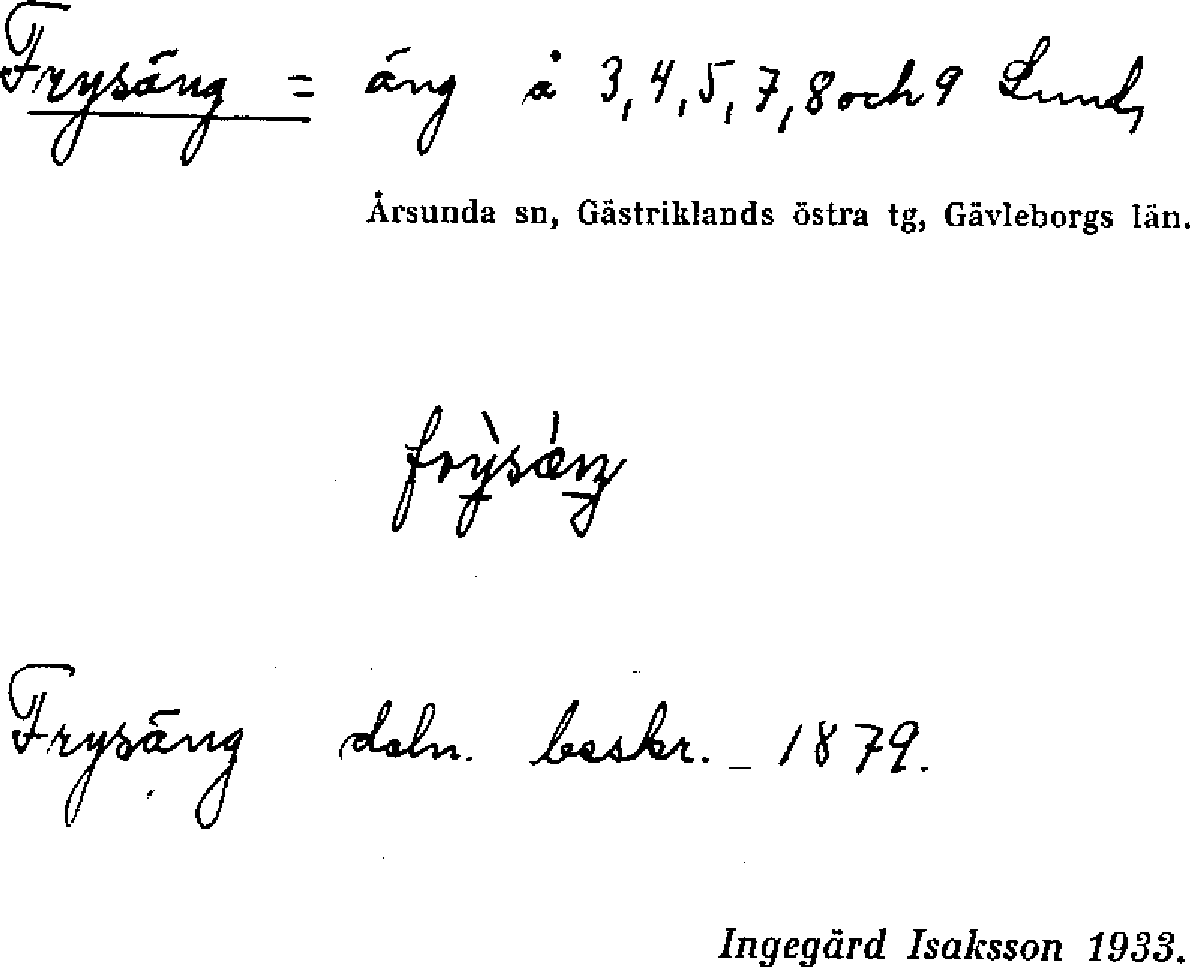 Frysäng = äng å 3, 4, 5, 7, 8 och 9 Lund,
Årsunda sn, Gästriklands östra tg, Gävleborgs län.
Frysäng deln. beskr. – 1879.
Ingegärd Isaksson 1933.